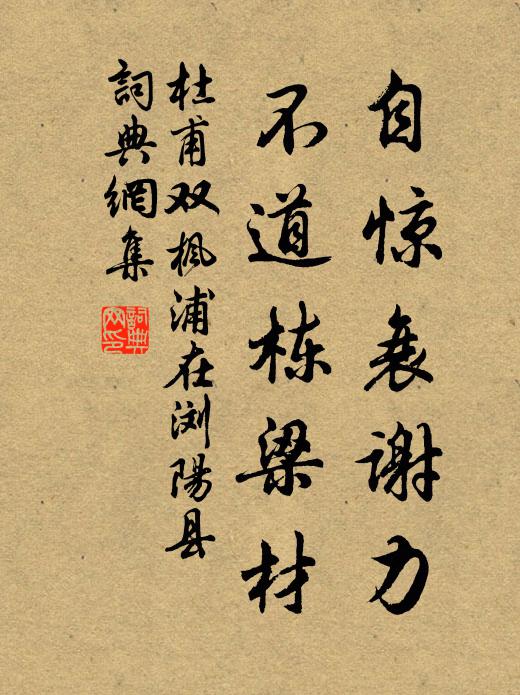 自惊衰谢力
不道栋梁材
杜甫双枫浦在浏阳县
詞典網集
詞典网印